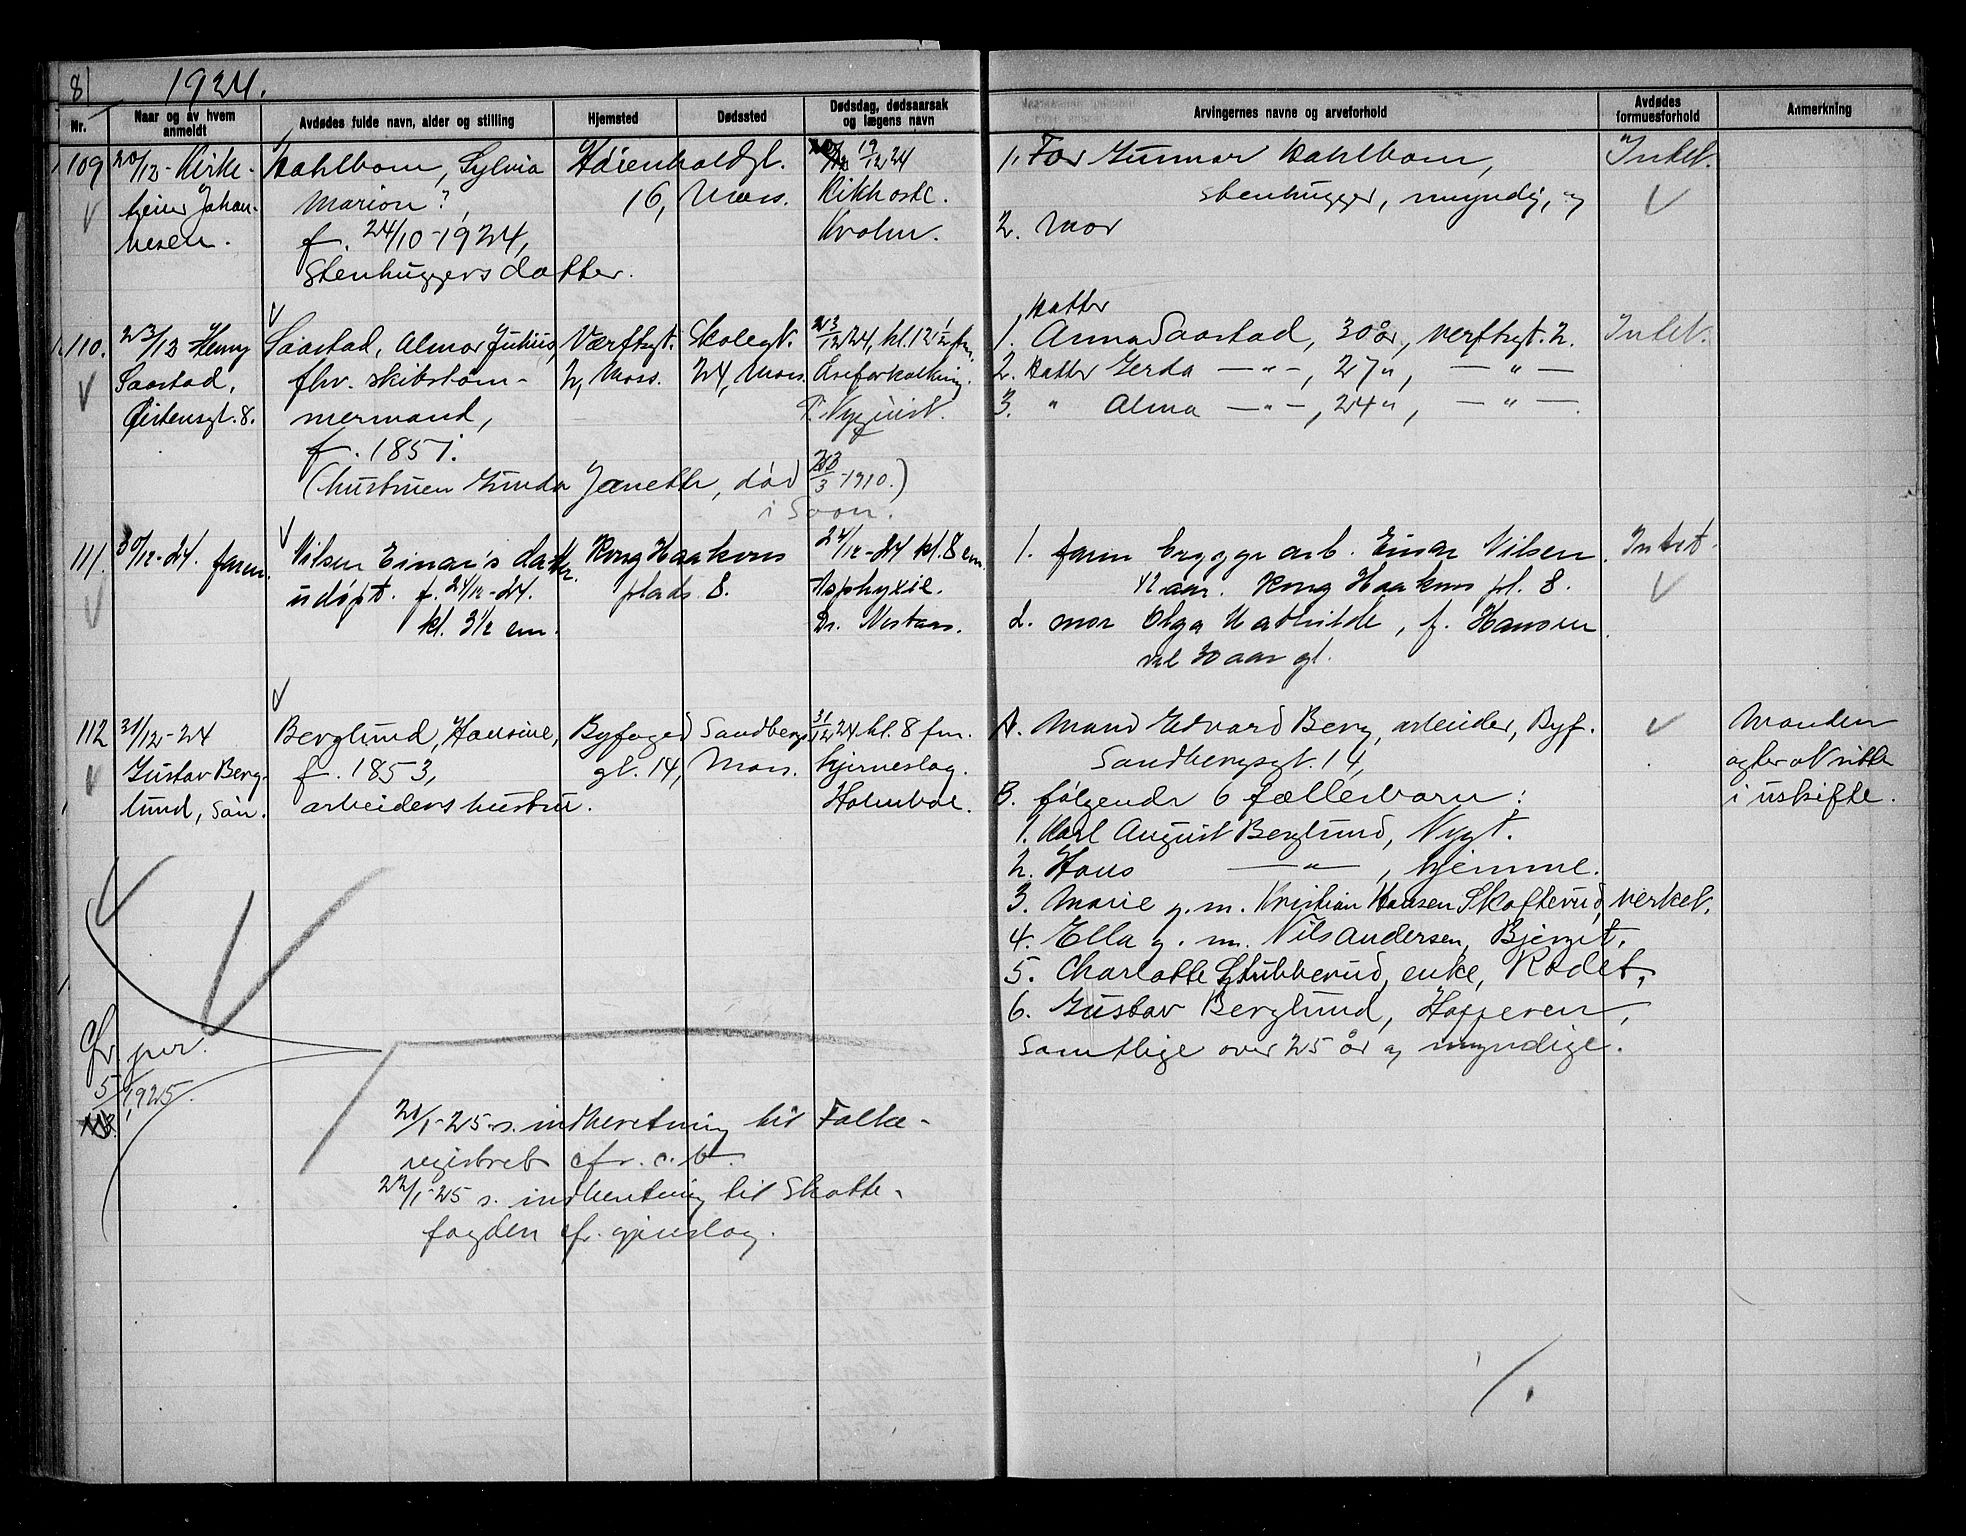 81
1924.
Nr.
Naar og av hvem anmeldt
Avdødes fulde navn, alder og stilling
Hjemsted
Dødssted
Dødsdag, dødsaarsak og lægens navn
Arvingernes navne og arveforhold
Avdødes formuesforhold
Anmerkning
109
20/12- Kirke-
tjener Johan-
nesen.
Dahlbom, Sylvia
Marion?,
f. 24/10-1924,
Stenhuggersdatter.
Høienholdgt.
16, Moss.
19/12 24
Kikhoste.
Kvolm.
1. Far Gunnar Dahlbom,
stenhugger, myndig, og
2. Mor
Intet.
110.
23/12 Henny
Saastad,
Østensgt. 8.
Saastad, Almar Julius,
fhv. skibstøm-
mermand,
f. 1851.
(hustruen Gunda Janette, død 23/3-1910.)
i Soon.
Værftsgt.
2, Moss.
Skolegt.
24, Moss.
23/12 24, kl. 12 1/2 fm.
Åreforkalkning.
T. Nyquist.
Datter
1. Anna Saastad, 30 år, verftsgt. 2.
2. Datter Gerda —"—, 27 ", —"—
3. " Alma —"—, 24 ", —"—.
Intet.
111.
30/12-24. faren.
Nilsen Einar's datter.
udøpt. f. 24/12-24.
kl. 3 1/2 em.
Kong Haakons
plads 8.
24/12-24 kl. 8 em.
Asphyxie.
Dr. Nestaas.
1. faren bryggearb. Einar Nilsen
42 aar. Kong Haakons pl. 8.
2. mor Olga Mathilde, f. Hansen
vel 30 aar gl.
Intet.
112
31/12-24
Gustav Berg-
lund, søn.
Berglund, Hansine,
f. 1853,
arbeiders hustru.
Byfoged Sandbergs
gt. 14, Moss.
31/12 24 kl. 8 fm.
hjerneslag.
Holmboe.
A. Mand Edvard Berg, arbeider, Byf.
Sandbergsgt. 14,
B. følgende 6 fællesbarn:
1. Karl August Berglund, Nygt.
2. Hans —"—, hjemme.
3. Marie g. m. Kristian Hansen Skofterud, verket.
4. Ella g. m. Nils Andersen, Bjerget.
5. Charlotte Stubberud, enke, Rødet,
6. Gustav Berglund, Hoppern,
Samtlige over 25 år og myndige.
Manden
agter at sitte
i uskifte.
Cfr. jnr.
5/1925.
21/1-25 s. indberetning til Folke-
registret cfr. c. b.
22/1-25 s. indberetning til Skatte-
fogden cfr. gjenslag.